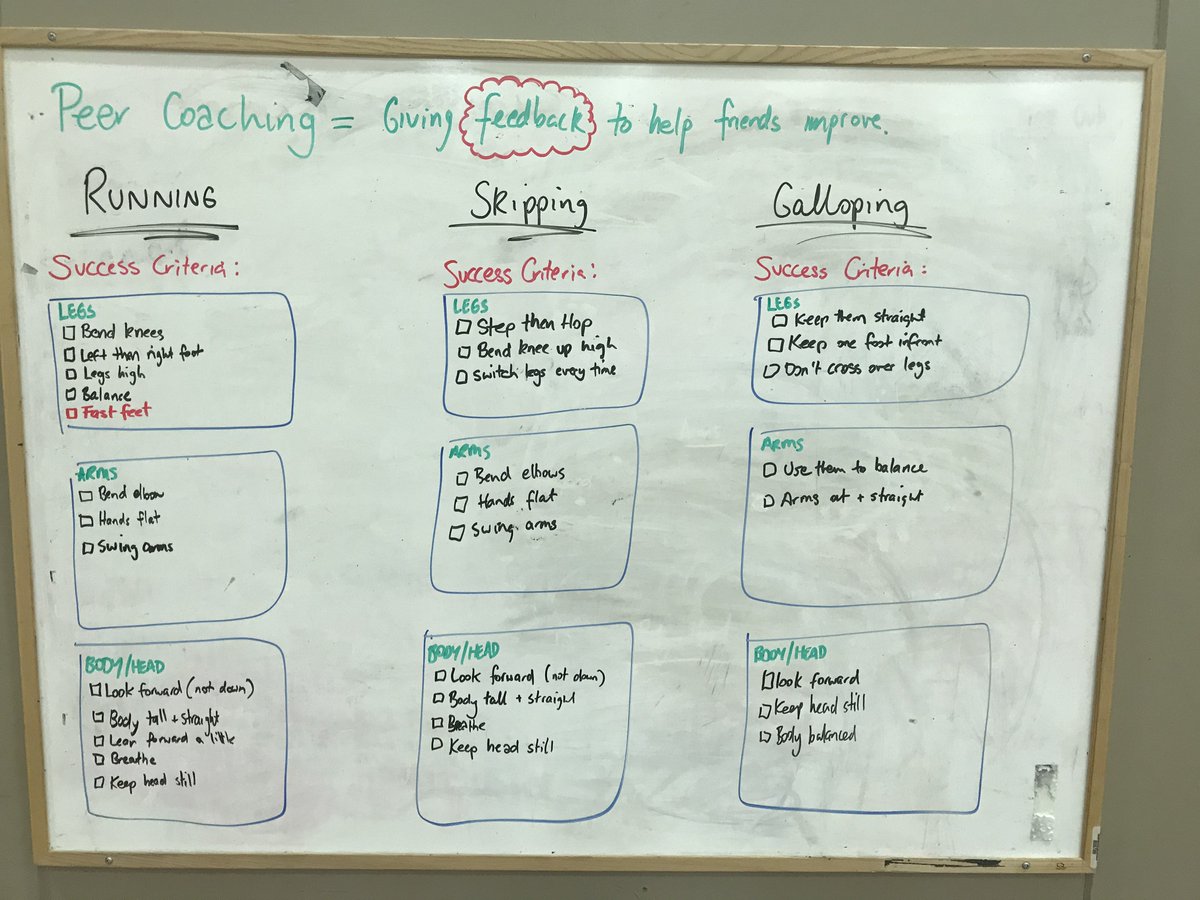 Peer Coaching = Giving feedback to help friends improve.
RUNNING
Success Criteria:
LEGS
Bend knees
Left then right foot
Legs high
Balance
Fast feet
ARMS
Bend elbow
Hands flat
Swing arms
BODY/HEAD
Look forward (not down)
Body tall + straight
Lean forward a little
Breathe
Keep head still
Skipping
Success Criteria:
LEGS
Step then Hop
Bend knee up high
Switch legs every time
ARMS
Bend elbows
Hands flat
Swing arms
BODY/HEAD
Look forward (not down)
Body tall + straight
Breathe
Keep head still
Galloping
Success Criteria:
LEGS
Keep them straight
Keep one foot infront
Don't cross over legs
ARMS
Use them to balance
Arms out + straight
BODY/HEAD
look forward
Keep head still
Body balanced